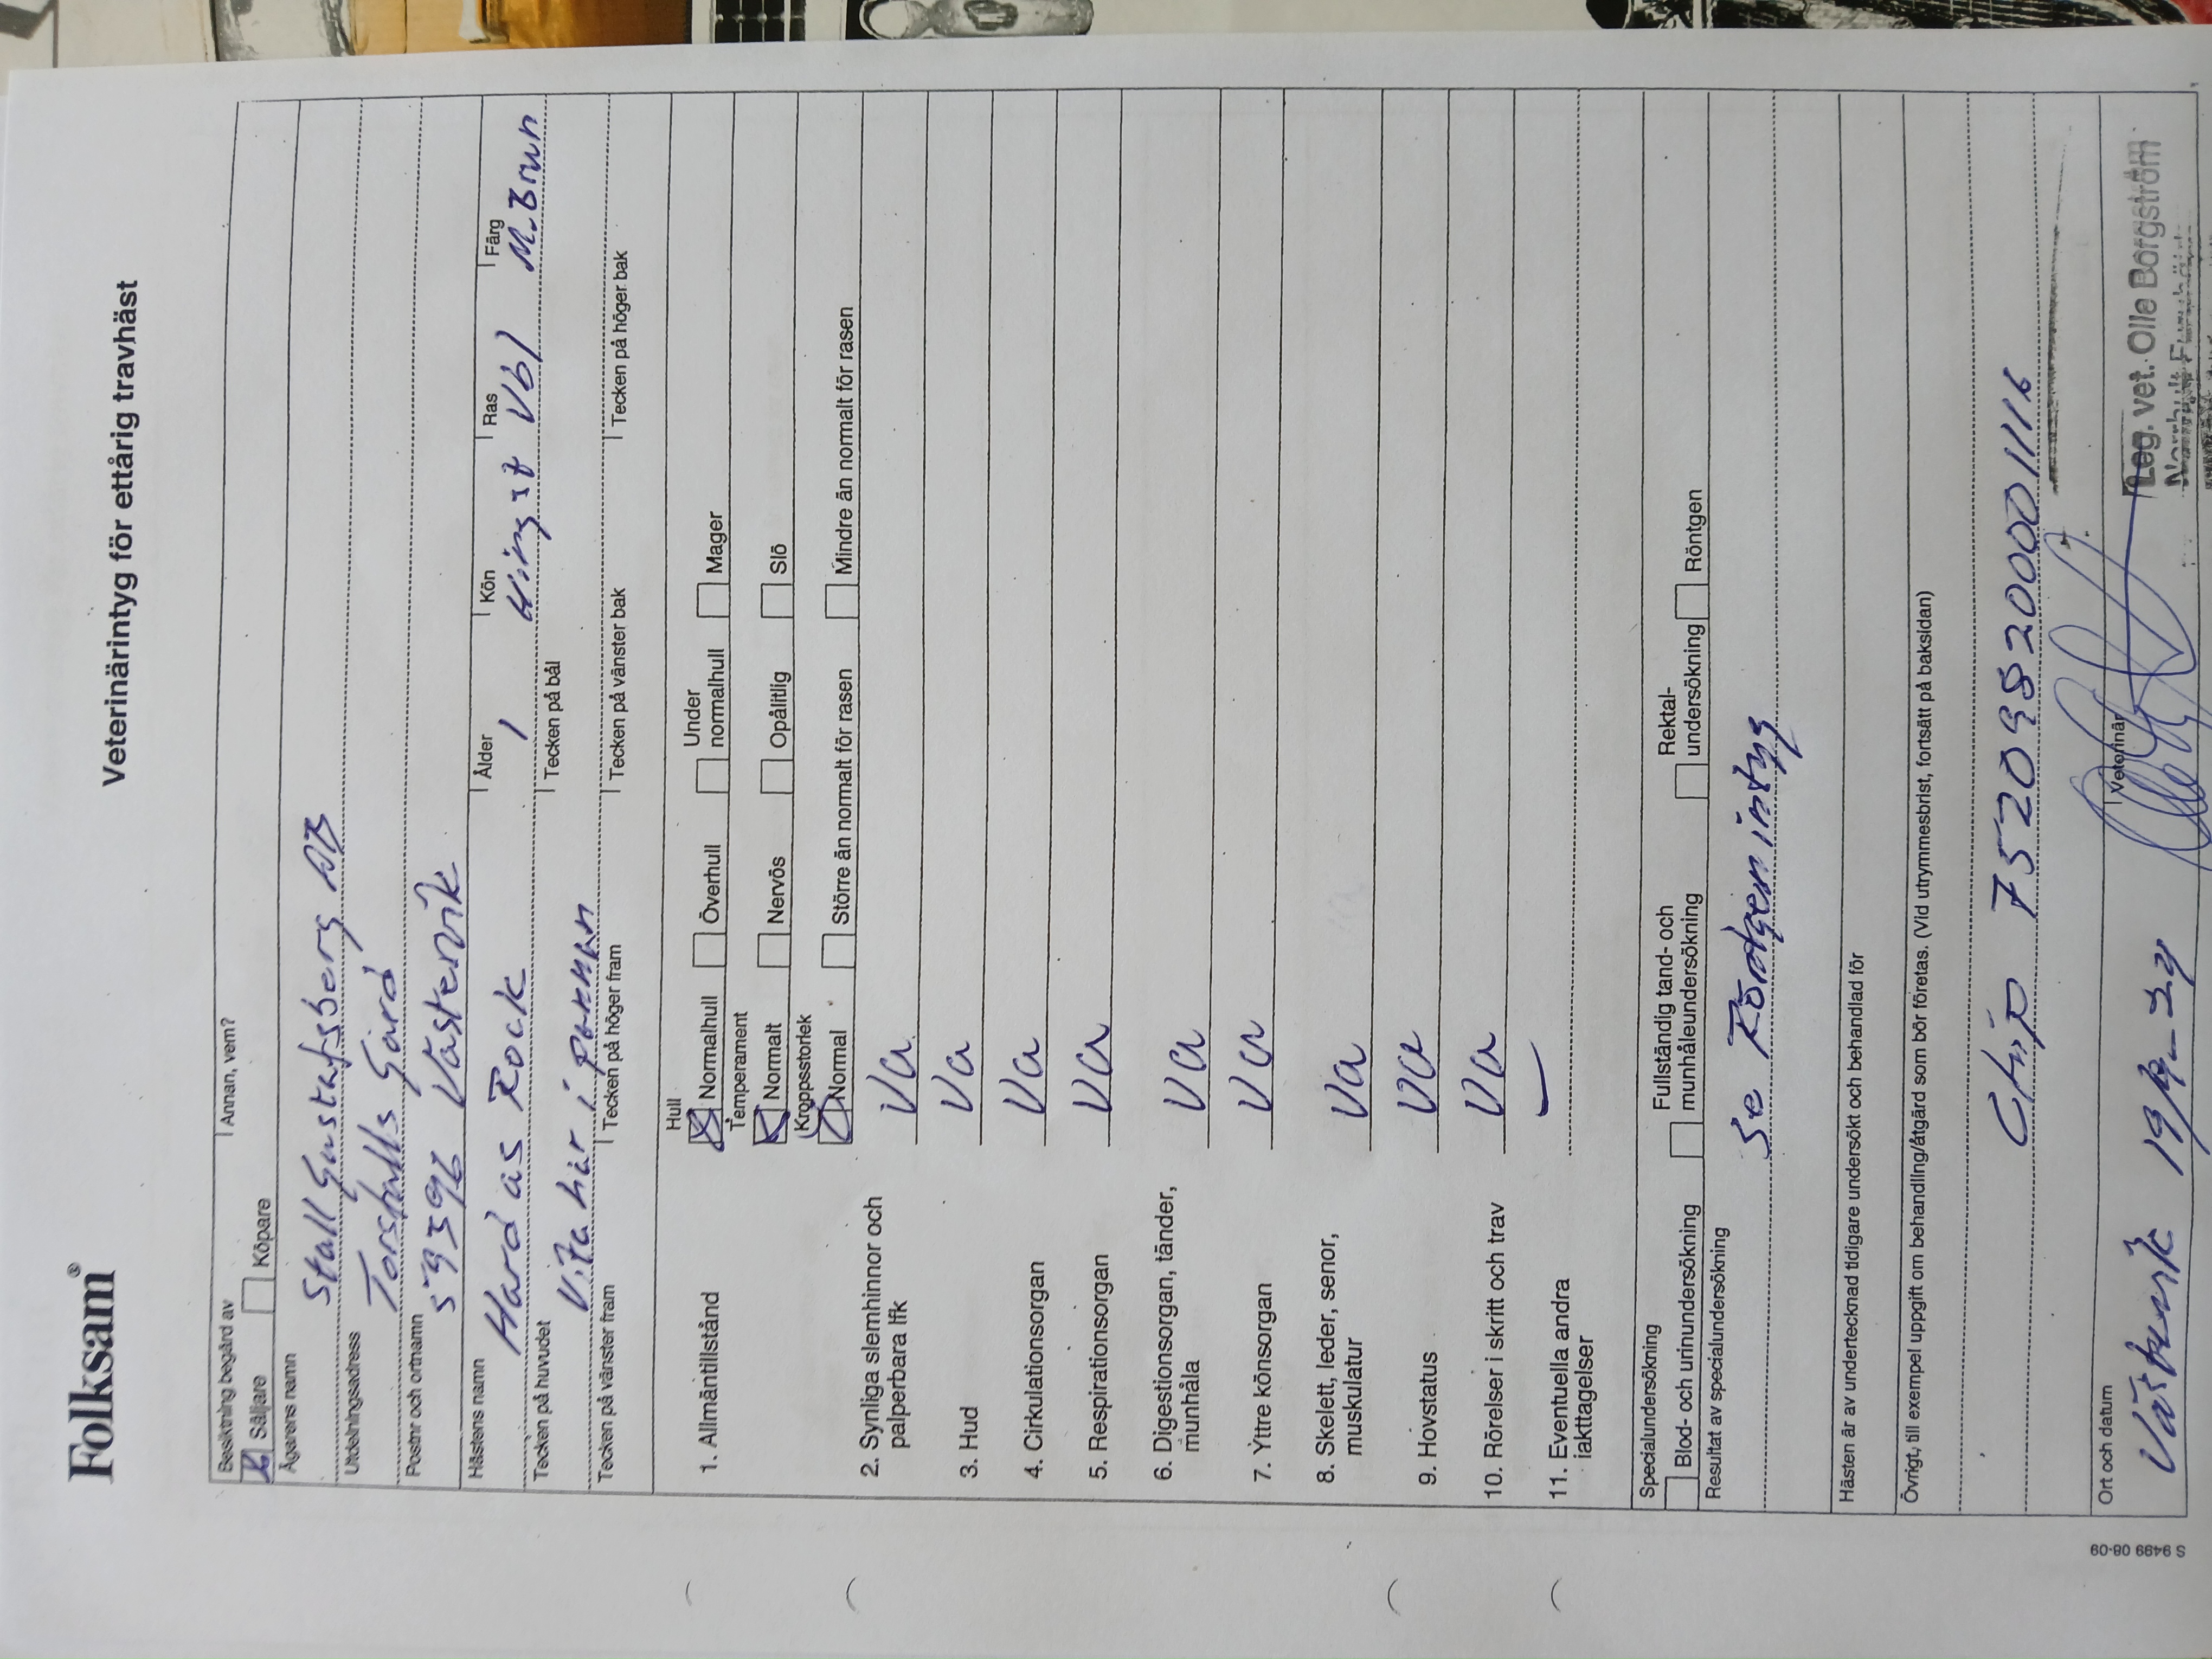 Folksam®
Veterinärintyg för ettårig travhäst
Besiktning begärd av
Säljare
Köpare
Annan, vem?
Ägarens namn
Stall Gustafsberg AB
Utdelningsadress
Torsfalls Gård
Postnr och ortnamn
59396 Västervik
Hästens namn
Hard as Rock
Ålder
1
Kön
Hingst
Ras
Vbl
Färg
M.Brun
Tecken på huvudet
Vita hår i pannan
Tecken på bål
Tecken på vänster fram
Tecken på höger fram
Tecken på vänster bak
Tecken på höger bak
1. Allmäntillstånd
Hull
Normalhull
Överhull
Under normalhull
Mager
Temperament
Normalt
Nervös
Opålitlig
Slö
Kroppsstorlek
Normal
Större än normalt för rasen
Mindre än normalt för rasen
2. Synliga slemhinnor och
palperbara lfk
Va
3. Hud
Va
4. Cirkulationsorgan
Va
5. Respirationsorgan
Va
6. Digestionsorgan, tänder,
munhåla
Va
7. Yttre könsorgan
Va
8. Skelett, leder, senor,
muskulatur
Va
9. Hovstatus
Va
10. Rörelser i skritt och trav
Va
11. Eventuella andra
iakttagelser
—
Specialundersökning
Blod- och urinundersökning
Fullständig tand- och
munhåleundersökning
Rektal-
undersökning
Röntgen
Resultat av specialundersökning
Se Röntgenintyg
Hästen är av undertecknad tidigare undersökt och behandlad för
Övrigt, till exempel uppgift om behandling/åtgärd som bör företas. (Vid utrymmesbrist, fortsätt på baksidan)
Chip 752098200001116
Ort och datum
Västervik
Veterinär
Leg. vet. Olle Borgström
S 9499 08-09